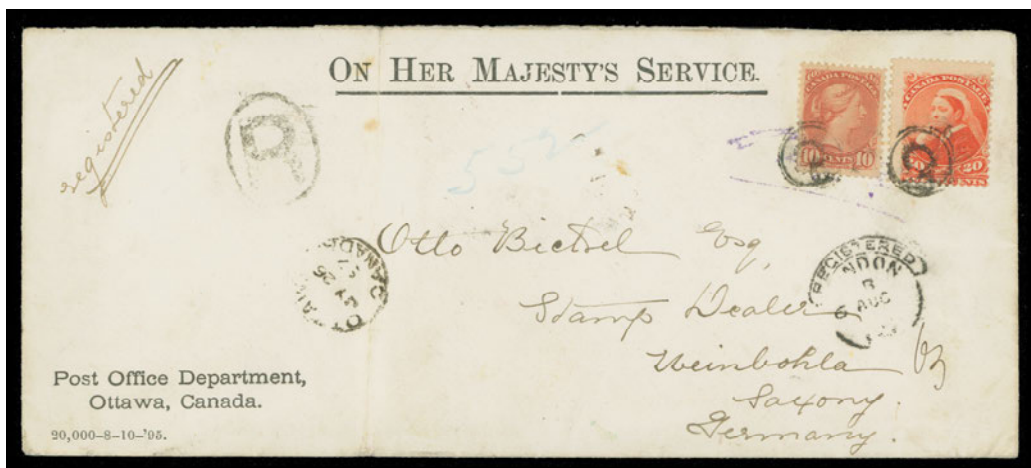 ON HER MAJESTY'S SERVICE.
registered
R
CANADA POSTAGE
10 CENTS 10
CANADA POSTAGE
20
CENTS
Otto Bickel Esq
Stamp Dealer
Weinbohla
Saxony.
Germany.
REGISTERED
LONDON
AUG
OTTAWA
CANADA
Post Office Department,
Ottawa, Canada.
20,000-8-10-'95.